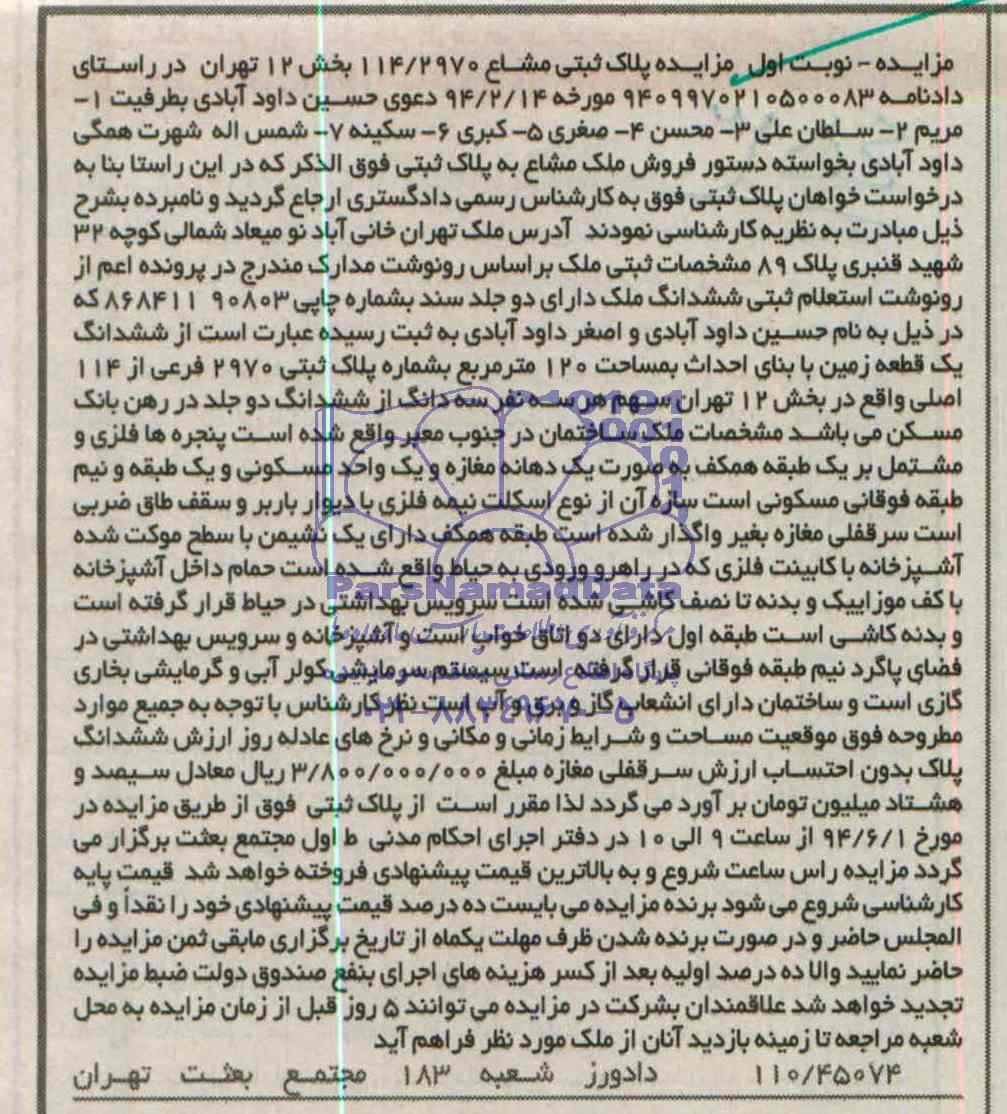 مزایده - نوبت اول مزایده پلاک ثبتی مشاع ۱۱۴/۲۹۷۰ بخش ۱۲ تهران در راستای
دادنامه ۹۴۰۹۹۷۰۲۱۰۵۰۰۰۸۳ مورخه ۹۴/۲/۱۴ دعوی حسین داود آبادی بطرفیت ۱-
مریم ۲- سلطان علی ۳- محسن ۴- صغری ۵- کبری ۶- سکینه ۷- شمس اله شهرت همگی
داود آبادی بخواسته دستور فروش ملک مشاع به پلاک ثبتی فوق الذکر که در این راستا بنا به
درخواست خواهان پلاک ثبتی فوق به کارشناس رسمی دادگستری ارجاع گردید و نامبرده بشرح
ذیل مبادرت به نظریه کارشناسی نمودند آدرس ملک تهران خانی آباد نو میعاد شمالی کوچه ۳۲
شهید قنبری پلاک ۸۹ مشخصات ثبتی ملک براساس رونوشت مدارک مندرج در پرونده اعم از
رونوشت استعلام ثبتی ششدانگ ملک دارای دو جلد سند بشماره چاپی ۹۰۸۰۳ ۸۶۸۴۱۱ که
در ذیل به نام حسین داود آبادی و اصغر داود آبادی به ثبت رسیده عبارت است از ششدانگ
یک قطعه زمین با بنای احداث بمساحت ۱۲۰ مترمربع بشماره پلاک ثبتی ۲۹۷۰ فرعی از ۱۱۴
اصلی واقع در بخش ۱۲ تهران سهم هر سه نفر سه دانگ از ششدانگ دو جلد در رهن بانک
مسکن می باشد مشخصات ملک ساختمان در جنوب معبر واقع شده است پنجره ها فلزی و
مشتمل بر یک طبقه همکف به صورت یک دهانه مغازه و یک واحد مسکونی و یک طبقه و نیم
طبقه فوقانی مسکونی است سازه آن از نوع اسکلت نیمه فلزی با دیوار باربر و سقف طاق ضربی
است سرقفلی مغازه بغیر واگذار شده است طبقه همکف دارای یک نشیمن با سطح موکت شده
آشپزخانه با کابینت فلزی که در راهرو ورودی به حیاط واقع شده است حمام داخل آشپزخانه
با کف موزاییک و بدنه تا نصف کاشی شده است سرویس بهداشتی در حیاط قرار گرفته است
و بدنه کاشی است طبقه اول دارای دو اتاق خواب است و آشپزخانه و سرویس بهداشتی در
فضای پاگرد نیم طبقه فوقانی قرار گرفته است سیستم سرمایشی کولر آبی و گرمایشی بخاری
گازی است و ساختمان دارای انشعاب گاز و برق و آب است نظر کارشناس با توجه به جمیع موارد
مطروحه فوق موقعیت مساحت و شرایط زمانی و مکانی و نرخ های عادله روز ارزش ششدانگ
پلاک بدون احتساب ارزش سرقفلی مغازه مبلغ ۳/۸۰۰/۰۰۰/۰۰۰ ریال معادل سیصد و
هشتاد میلیون تومان بر آورد می گردد لذا مقرر است از پلاک ثبتی فوق از طریق مزایده در
مورخ ۹۴/۶/۱ از ساعت ۹ الی ۱۰ در دفتر اجرای احکام مدنی ط اول مجتمع بعثت برگزار می
گردد مزایده راس ساعت شروع و به بالاترین قیمت پیشنهادی فروخته خواهد شد قیمت پایه
کارشناسی شروع می شود برنده مزایده می بایست ده درصد قیمت پیشنهادی خود را نقداً و فی
المجلس حاضر و در صورت برنده شدن ظرف مهلت یکماه از تاریخ برگزاری مابقی ثمن مزایده را
حاضر نمایید والا ده درصد اولیه بعد از کسر هزینه های اجرای بنفع صندوق دولت ضبط مزایده
تجدید خواهد شد علاقمندان بشرکت در مزایده می توانند ۵ روز قبل از زمان مزایده به محل
شعبه مراجعه تا زمینه بازدید آنان از ملک مورد نظر فراهم آید
۱۱۰/۴۵۰۷۴ دادورز شعبه ۱۸۳ مجتمع بعثت تهران
ParsNamadData
۰۲۱-۸۸۳۴۹۶۷۰-۵